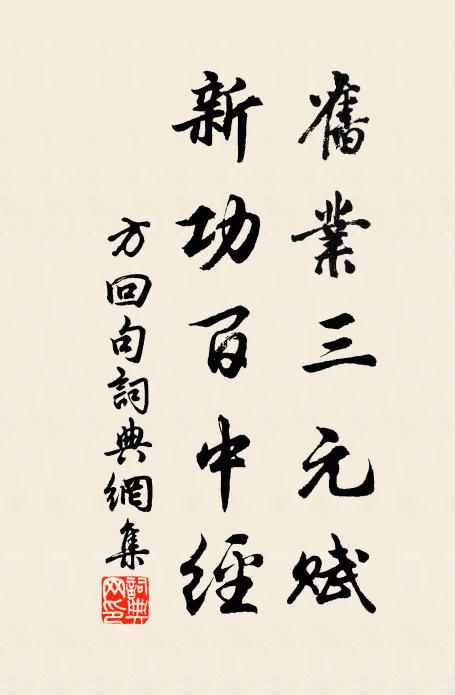 舊業三元賦
新功百中經
方回句詞典網集
詞典
网印